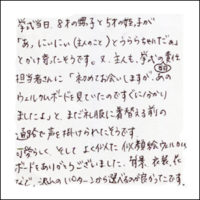 挙式当日、8才の甥子と5才の姪っ子が
「あ、にいにい(主人のこと)とうららちゃんだぁ」
とかけ寄ったそうです。又、主人も、挙式の責任
担当者さんに「初めてお会いしますが、あの
ウェルカムボードを見ていたのですぐに分かり
ましたよ」と まだ礼服に着替える前の
道路で声を掛けられたそうです
可愛らしく、そして よく似てた 似顔絵ウェルカム
ボードをありがとうございました。背景、衣装、花
など、沢山のパターンから選べるのが良かったです。